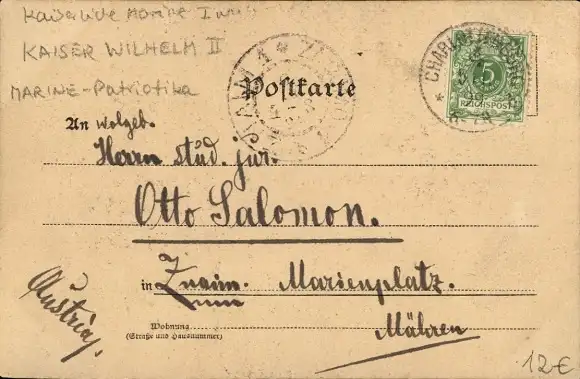 Kaiserliche Marine
KAISER WILHELM II
MARINE-Patriotika
Postkarte
CHARLOTTENBURG
5
REICHSPOST
ZNAIM
An wolgeb.
Herrn stud. jur.
Otto Salomon.
in Znaim. Marienplatz.
Mähren
Austria.
Wohnung
(Straße und Hausnummer)
12€